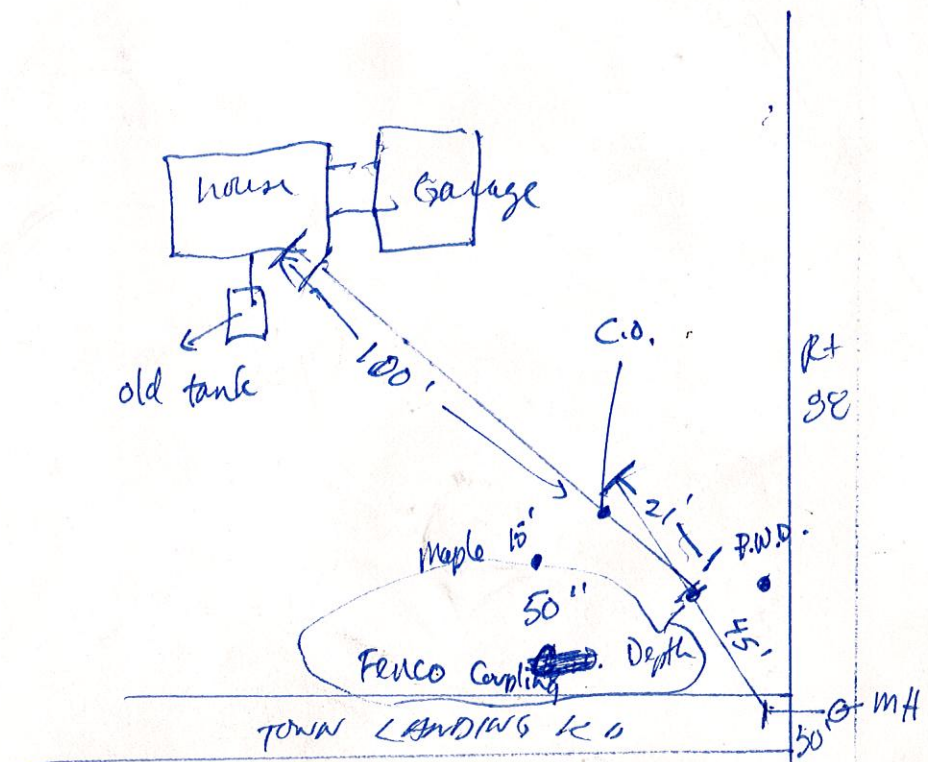 house
Garage
old tank
100'
C.O.
Rt
98
21'
B.W.D.
Maple 15'
50"
Fenco Coupling Depth
45'
MH
50'
TOWN LANDING RD